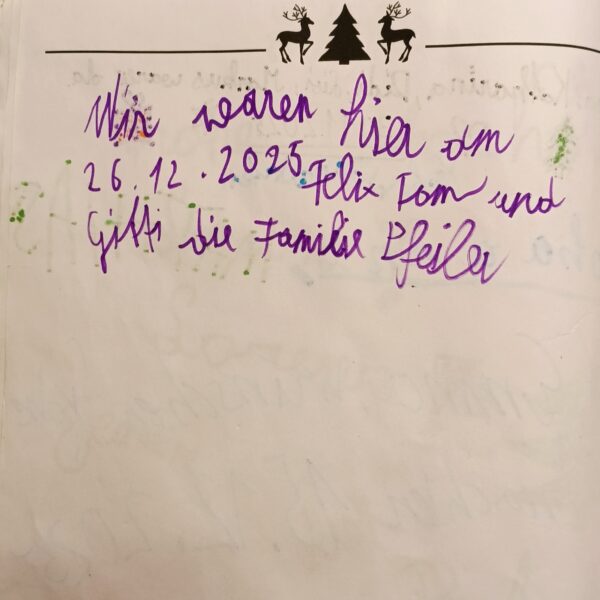 Wir waren hier am
26.12.2025 Felix Tom und
Gitti die Familie Pfeiler